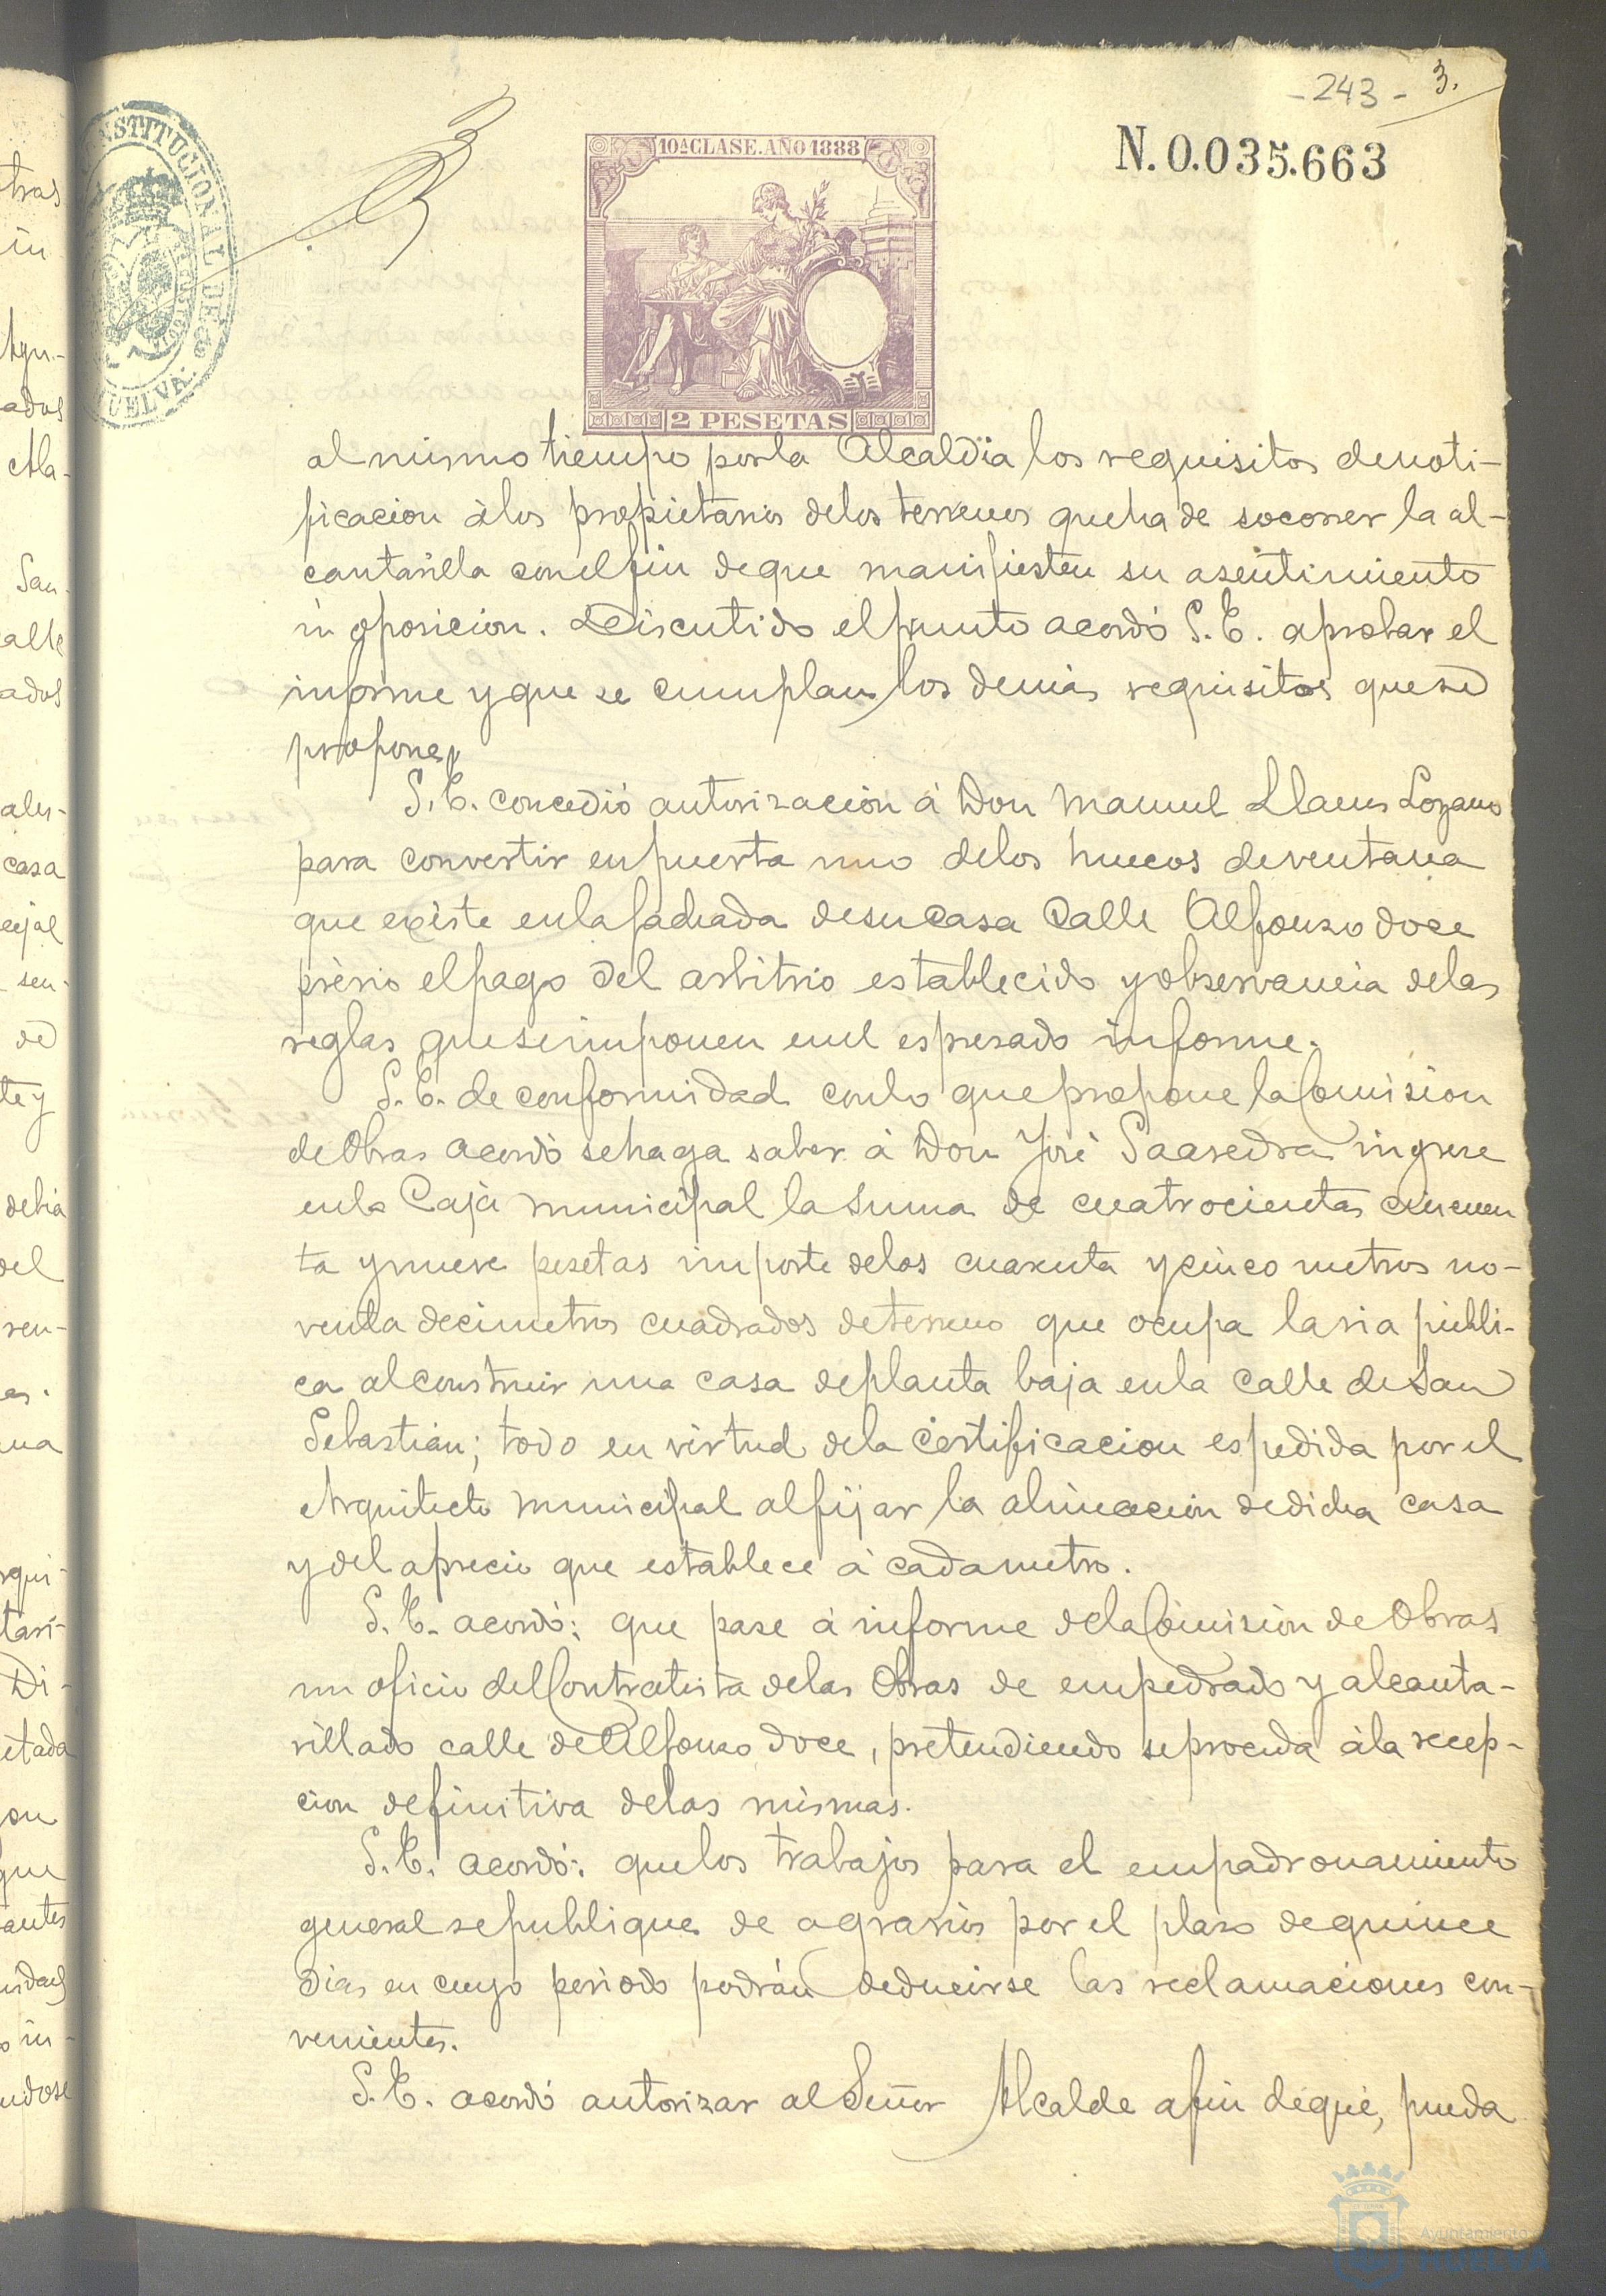 - 243 - 3.
N.0.035.663
10ª CLASE. AÑO 1888
CONSTITUCIONAL DE
HUELVA.
2 PESETAS
al mismo tiempo por la Alcaldia los requisitos de noti-
ficacion á los propietarios de los terrenos que ha de socorrer la al-
cantarilla con el fin de que manifiesten su asentimiento
ú oposicion. Discutido el punto acordó S. E. aprobar el
informe y que se cumplan los demás requisitos que se
propone,
S. E. concedió autorizacion á Don Manuel Llanes Lozano
para convertir en puerta uno de los huecos de ventana
que existe en la fachada de su casa Calle Alfonso doce
prévio el pago del arbitrio establecido y observancia de las
reglas que se imponen en el espresado informe.
S. E. de conformidad con lo que propone la Comision
de Obras acordó se haga saber á Don José Saavedra ingrese
en la Caja municipal la suma de cuatrocientas cincuen
ta y nueve pesetas importe de los cuarenta y cinco metros no-
venta decimetros cuadrados de terreno que ocupa la via públi-
ca al construir una casa de planta baja en la calle de San
Sebastián; todo en virtud de la certificacion espedida por el
Arquitecto municipal al fijar la alineacion de dicha casa
y del aprecio que establece á cada metro.
S. E. acordó: que pase á informe de la Comision de Obras
un oficio del Contratista de las Obras de empedrado y alcanta-
rillado calle de Alfonso doce, pretendiendo se proceda á la recep-
cion definitiva de las mismas.
S. E. acordó: que los trabajos para el empadronamiento
general se publique de agravios por el plazo de quince
dias en cuyo periodo podrán deducirse las reclamaciones con-
venientes.
S. E. acordó autorizar al Señor Alcalde a fin de que, pueda
Ayuntamiento
HUELVA